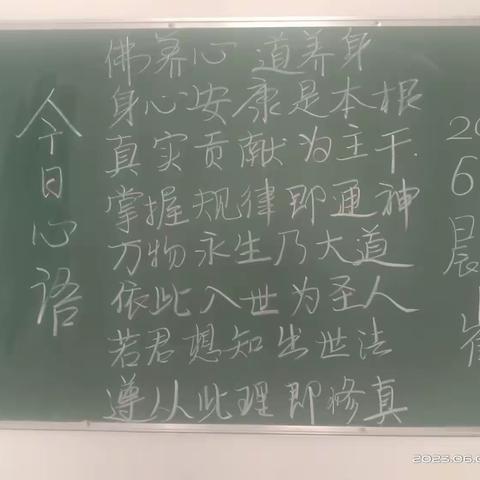 今日心语
佛养心 道养身
身心安康是本根
真实贡献为主干.
掌握规律即通神
万物永生乃大道
依此入世为圣人
若君想知出世法
遵从此理即修真
20
6
日
晨
2023.06.0